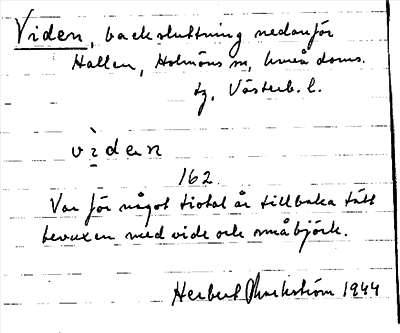 Viden, backsluttning nedanför
Hallen, Holmöns sn, Umeå doms.
tg, Västerb. l.
vìden
162
Var för något tiotal år tillbaka tätt
bevuxen med vide och småbjörk.
Herbert Markström 1944